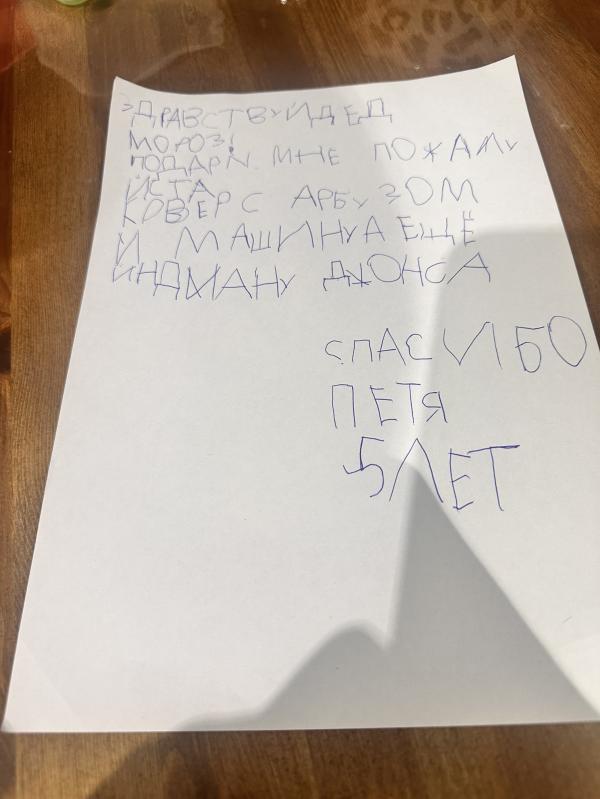 ЗДРАВСТВУЙ ДЕД
МОРОЗ!
ПОДАРИ МНЕ ПОЖАЛУ
ЙСТА
КОВЕР С АРБУЗОМ
И МАШИНУ А ЕЩЁ
ИНДИАНУ ДЖОНСА
СПАСИБО
ПЕТЯ
5 ЛЕТ